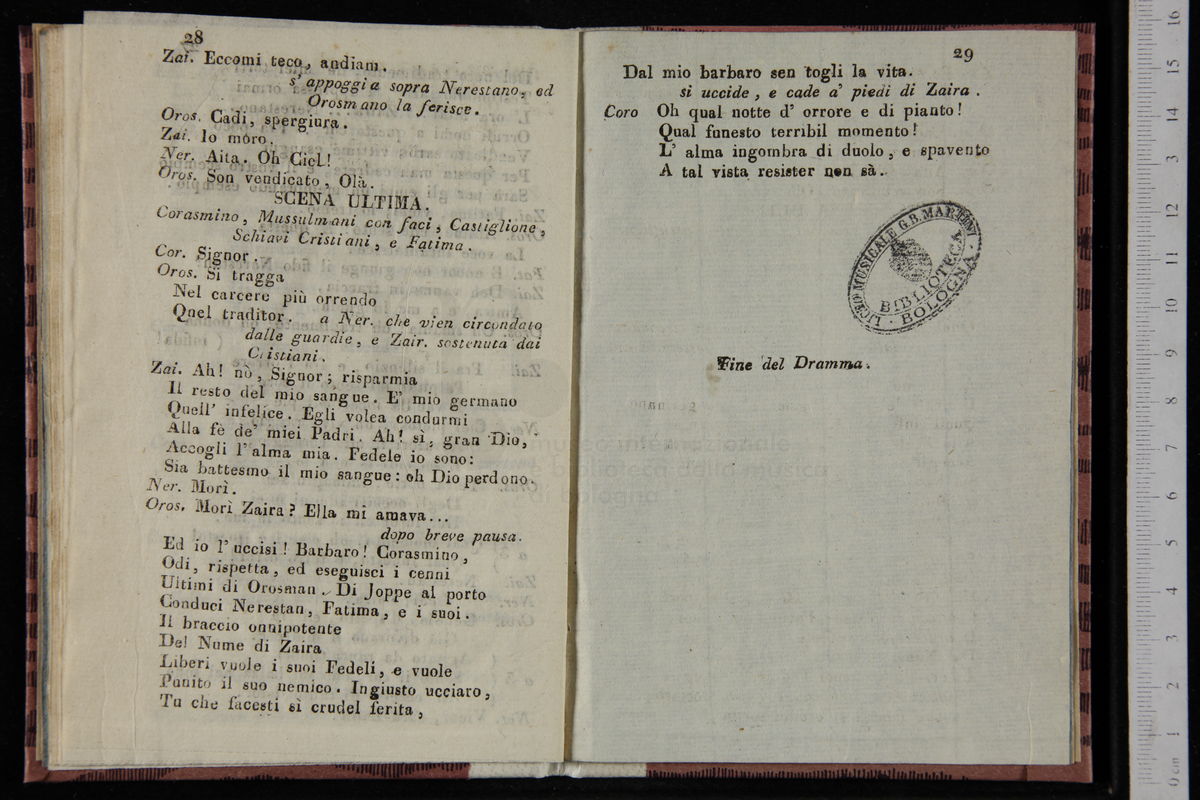 28
Zai. Eccomi teco, andiam.
s' appoggia sopra Nerestano, ed
Orosmano la ferisce.
Oros. Cadi, spergiura.
Zai. Io moro.
Ner. Aita. Oh Ciel!
Oros. Son vendicato, Olà.
SCENA ULTIMA.
Corasmino, Mussulmani con faci, Castiglione,
Schiavi Cristiani, e Fatima.
Cor. Signor.
Oros. Si tragga
Nel carcere più orrendo
Quel traditor. a Ner. che vien circondato
dalle guardie, e Zair. sostenuta dai
Cristiani.
Zai. Ah! nò, Signor; risparmia
Il resto del mio sangue. E' mio germano
Quell' infelice. Egli volea condurmi
Alla fè de' miei Padri. Ah! sì, gran Dio,
Accogli l'alma mia. Fedele io sono:
Sia battesmo il mio sangue: oh Dio perdono.
Ner. Morì.
Oros. Morì Zaira? Ella mi amava...
dopo breve pausa.
Ed io l'uccisi! Barbaro! Corasmino,
Odi, rispetta, ed eseguisci i cenni
Ultimi di Orosman. Di Joppe al porto
Conduci Nerestan, Fatima, e i suoi.
Il braccio onnipotente
Del Nume di Zaira
Liberi vuole i suoi Fedeli, e vuole
Punito il suo nemico. Ingiusto ucciaro,
Tu che facesti sì crudel ferita,
29
Dal mio barbaro sen togli la vita.
si uccide, e cade a' piedi di Zaira.
Coro Oh qual notte d' orrore e di pianto!
Qual funesto terribil momento!
L' alma ingombra di duolo, e spavento
A tal vista resister non sà.
LICEO MUSICALE G.B. MARTINI
BIBLIOTECA
BOLOGNA
Fine del Dramma.
museo internazionale
e biblioteca della musica
di bologna
0 cm 1 2 3 4 5 6 7 8 9 10 11 12 13 14 15 16